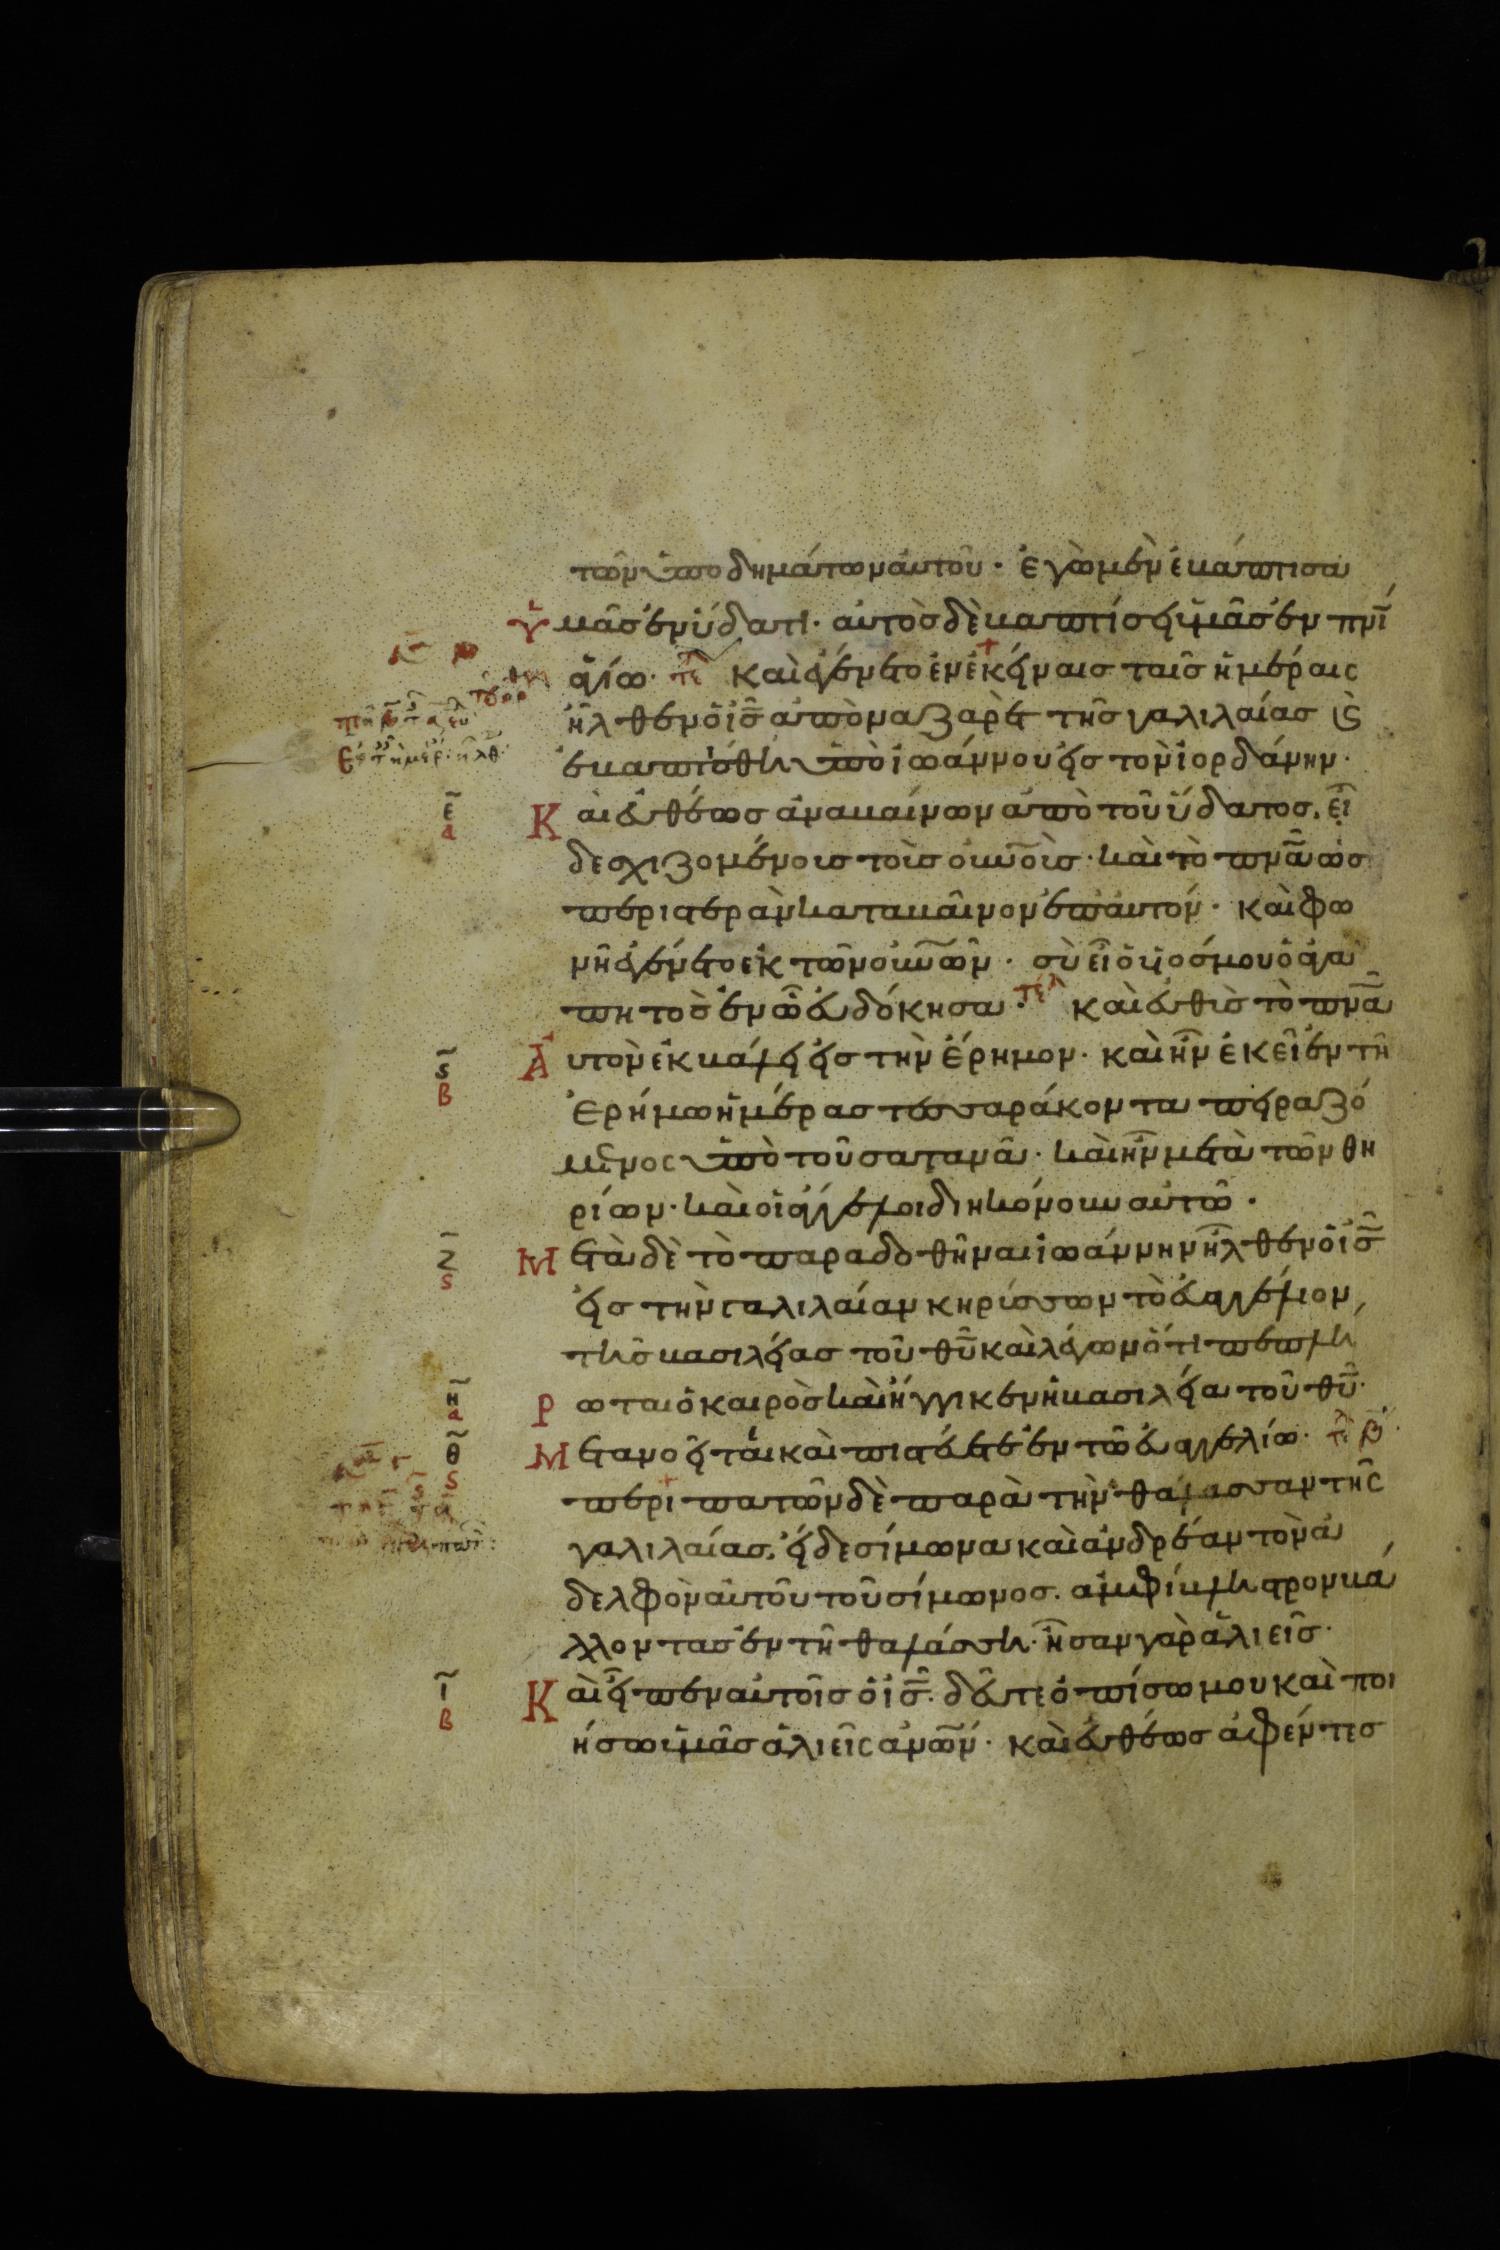 τῶν ὑποδημάτων αὐτοῦ· ἐγὼ μὲν ἐβάπτισα
ὑμᾶς ἐν ὕδατι· αὐτὸς δὲ βαπτίσει ὑμᾶς ἐν πνι
ἁγίω· τε καὶ ἐγένετο ἐν ἐκείναις ταῖς ἡμέραις
ἦλθεν ὁ ις ἀπὸ ναζαρὲτ τῆς γαλιλαίας καὶ
ἐβαπτίσθη ὑπὸ ἰωάννου εἰς τὸν ἰορδάνην·
ε α
Καὶ εὐθέως ἀναβαίνων ἀπὸ τοῦ ὕδατος, εἶ
δε σχιζομένοις τοὶς οὐνοὶς· καὶ τὸ πνα ὡς
περιστερὰν καταβαῖνον ἐπ' αὐτόν· καὶ φω
νὴ ἐγένετο ἐκ τῶν οὐνῶν· σὺ εἶ ὁ υἱός μου ὁ ἀγα
πητὸς ἐν ὧ εὐδόκησα· τελ καὶ εὐθὶς τὸ πνα
ς β
Αὐτὸν ἐκβάλλει εἰς τὴν ἔρημον· καὶ ἦν ἐκεῖ ἐν τῆ
ἐρήμω ἡμέρας τεσσαράκοντα πειραζό
μενος ὑπὸ τοῦ σατανᾶ· καὶ ἦν μετὰ τῶν θη
ρίων· καὶ οἱ ἄγγελοι διηκόνουν αὐτῶ·
ζ ς
Μετὰ δὲ τὸ παραδοθῆναι ἰωάννην ἦλθεν ὁ ις
εἰς τὴν γαλιλαίαν κηρύσσων τὸ εὐαγγέλιον
τῆς βασιλείας τοῦ θυ καὶ λέγων ὅτι πεπλή
η α
ρωται ὁ καιρὸς καὶ ἤγγικεν ἡ βασιλεία τοῦ θυ·
θ ς
Μετανοεῖται καὶ πιστεύετε ἐν τῶ εὐαγγελίω· τε β·
περιπατῶν δὲ παρὰ τὴν θάλασσαν τῆς
γαλιλαίας, εἶδε σίμωνα καὶ ἀνδρέαν τὸν ἀ
δελφὸν αὐτοῦ τοῦ σίμωνος. ἀμφίβληστρον βά
λλοντας ἐν τῆ θαλάσση· ἦσαν γὰρ ἁλιεῖς·
ι β
Καὶ εἶπεν αὐτοῖς ὁ ις· δεῦτε ὀπίσω μου καὶ ποι
ήσω ὑμᾶς ἁλιεῖς ἀνων· καὶ εὐθέως ἀφέντες